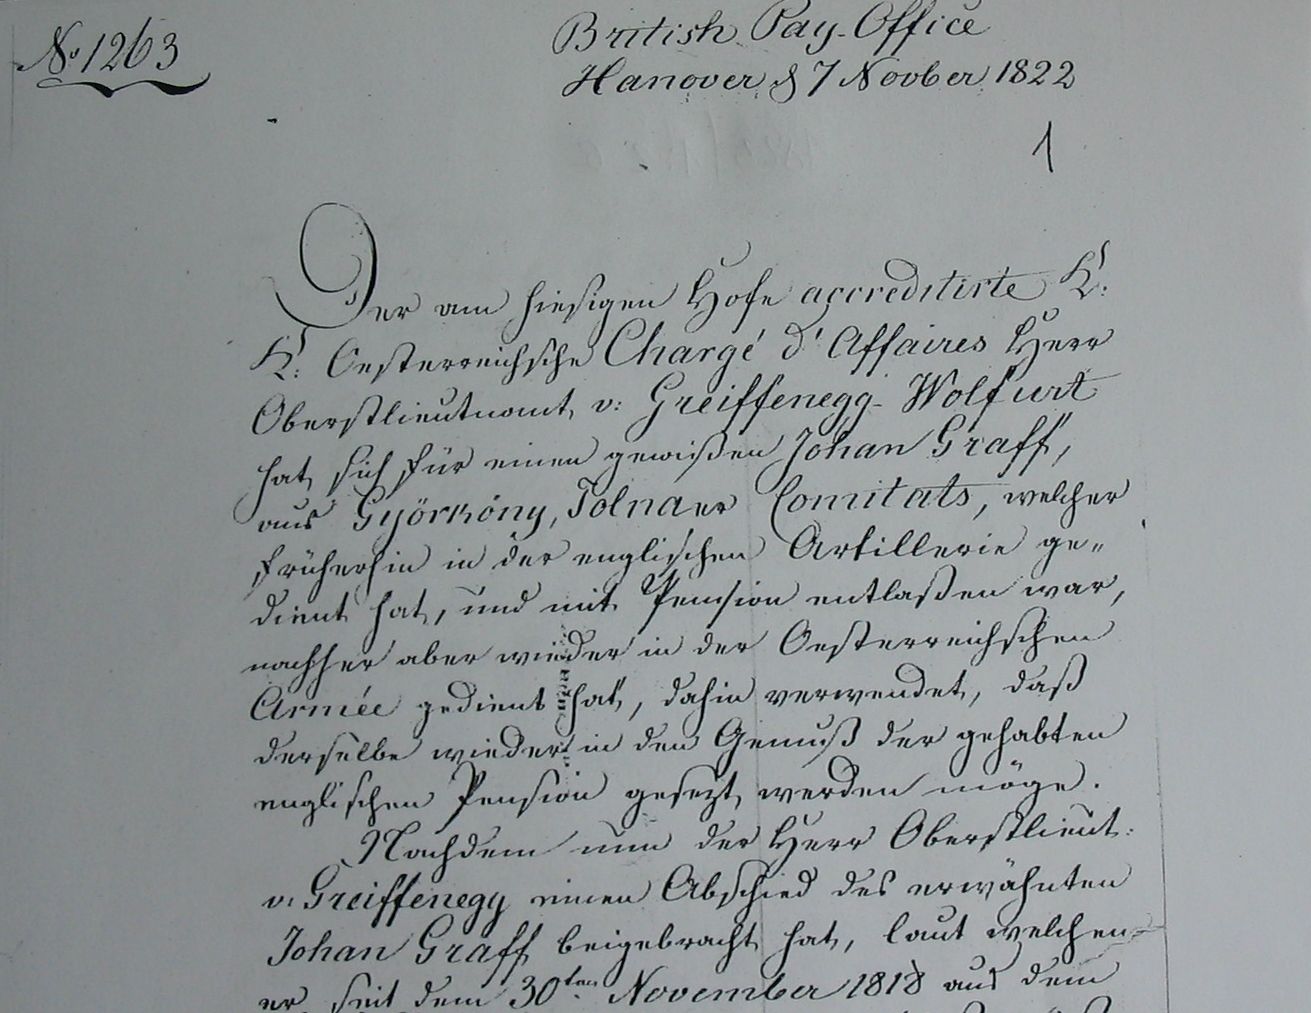 No 1263
British Pay-Office
Hanover d 7 Novber 1822
1
Der am hiesigen Hofe accreditirte K:
K: Oesterreichsche Chargé d'Affaires Herr
Oberstlieutnant v: Greiffenegg-Wolfurt
hat sich für einen gewißen Johan Graff,
aus Györköny, Tolnaer Comitats, welcher
früherhin in der englischen Artillerie ge-
dient hat, und mit Pension entlaßen war,
nachher aber wieder in der Oesterreichschen
Armée gedient hat, dahin verwendet, daß
derselbe wieder in den Genuß der gehabten
englischen Pension gesezt werden möge.
Nachdem nun der Herr Oberstlieut:
v: Greiffenegg einen Abschied des erwähnten
Johan Graff beigebracht hat, laut welchen
er seit dem 30ten November 1818 aus dem